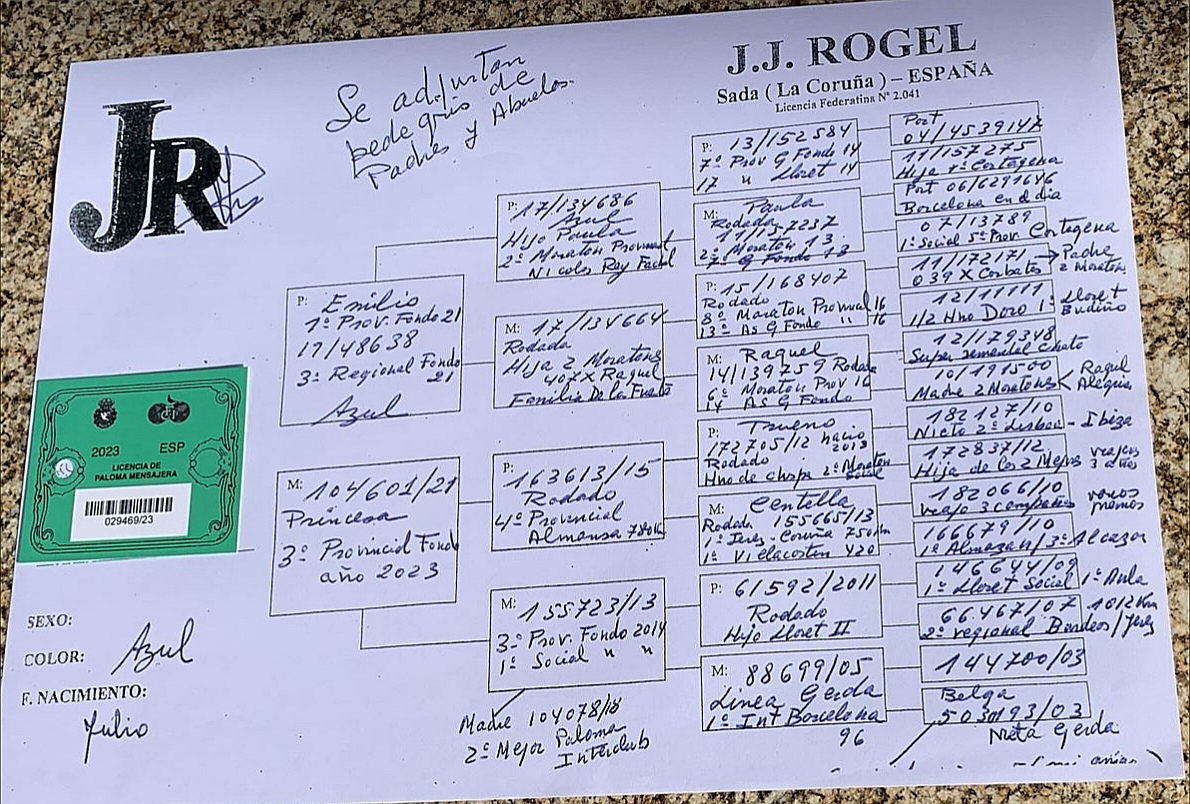 J.J. ROGEL
Sada ( La Coruña ) – ESPAÑA
Licencia Federativa Nº 2.041
JR
Se adjuntan
pedegris de
Padres y Abuelos.
2023 ESP
LICENCIA DE
PALOMA MENSAJERA
029469/23
SEXO:
COLOR: Azul
F. NACIMIENTO:
Julio
P: Emilio
1º Prov. Fondo 21
17/48638
3º Regional Fondo
21
Azul
M: 104601/21
Princesa
3º Provincial Fondo
año 2023
P: 17/134686
Azul
Hijo Paula
2º Moraton Provincial
Nicolas Rey Facal
M: 17/134664
Rodada
Hija 2 Moratons
407 X Raquel
Familia De la Fuente
P: 163613/15
Rodado
4º Provincial
Almansa 780 K
M: 155723/13
3º Prov. Fondo 2014
1º Social " "
Madre 104078/18
2º Mejor Paloma
Interclub
P: 13/152584
7º Prov G Fondo 14
17 " Lloret 14
M: Paula
Rodada
11/157237
2º Moraton 13
7º G Fondo 13
P: 15/168407
Rodado
8º Moraton Provincial 16
13º As G Fondo " 16
M: Raquel
14/139259 Rodada
6º Moraton Prov 16
14 As G Fondo
P: Trueno
172705/12 nacio 2013
Rodado
Hno de Chispa 2º Moraton Social
M: Centella
Rodada 155665/13
1º Jerez - Coruña 750 km
1º Vilacosten 420
P: 61592/2011
Rodado
Hijo Lloret II
M: 88699/05
Linea Gerda
1º Int Barcelona
96
Port
04/4539147
11/157275
Hija 1º Cartagena
Port 06/6291646
Barcelona en el dia
07/13789
1º Social 5º Prov. Cartagena
11/172171 → Padre
039 X Corbatos 2 Moratons
12/11111 Lloret
1/2 Hno Doro 1º Budiño
12/179348
Super semental Chato
10/191500 Raquel
Madre 2 Moratones < Alegria
182127/10
Nieto 2º Lisboa - Ibiza
172837/12 viajes
Hija de los 2 Mejores 3 años
182066/10
viajo 3 campañas
166679/10
1º Almazan / 3º Alcazar
146644/09
1º Lloret Social 1º Avila
66.467/07 1012 Km
2º regional Burdeos / Jerez
144700/03
Belga
5030193/03
Nieta Gerda